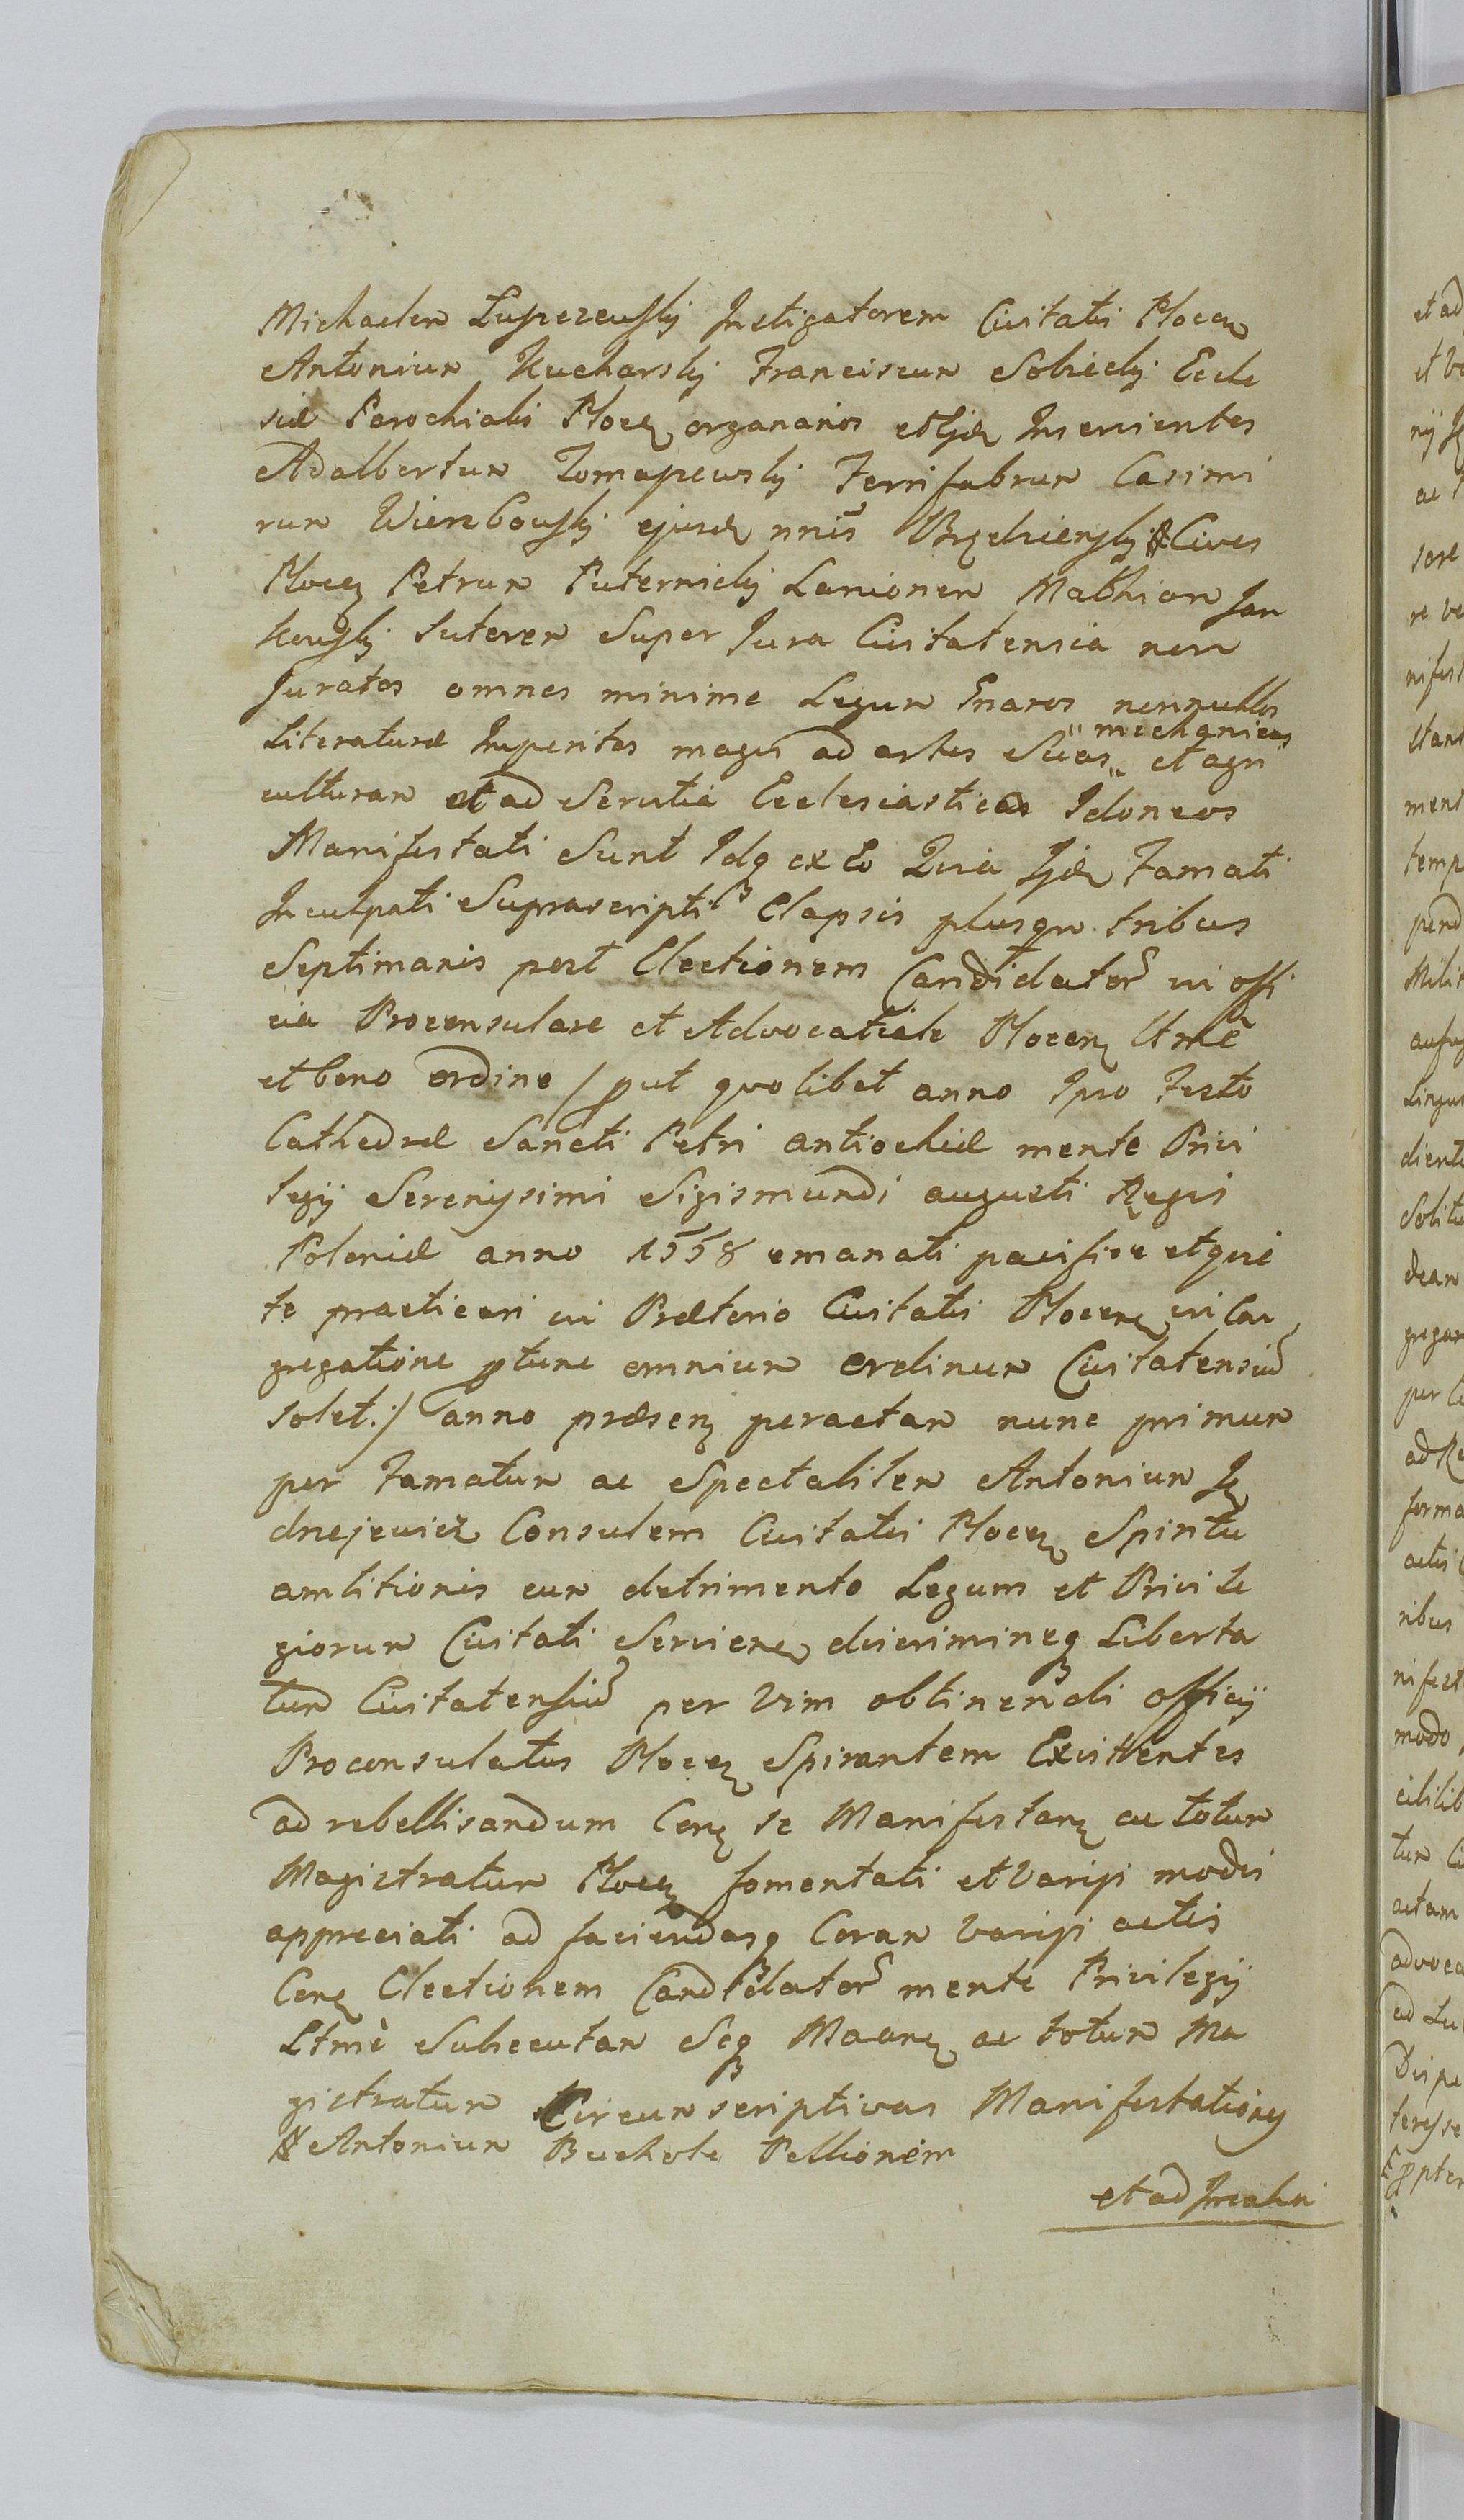 Michaelem Lupczewskij Instigatorem Civitatis Plocen
Antonium Kucharskij Franciscum Sobieckij Eccle
siæ Parochialis Plocen organarios et Ijdem Inservientes
Adalbertum Tomaszewskij Ferrifabrum Casimi
rum Wierzbowskij ejusd nnis Brzezienskij # Cives
Plocen Petrum Puternickij Lanionem Mathiam Jan
kowskij Sutorem Super Jura Civitatensia non
Juratos omnes minime Legum Gnaros nonnullos
Literaturæ Imperitos magis ad artes Suas " mechanicas " et agri
culturam et ad Servitia Ecclesiastica Idoneos
Manifestati Sunt Idq ex Eo Quia Ijdem Famati
Inculpati Suprascripti Elapsis plusqm tribus
Septimanis post Electionem Candidator in offi
cia Proconsulare et Advocatiale Plocen Ltme
et bono ordine /prut quolibet anno Ipso Festo
Cathedræ Sancti Petri antiochiæ mente Privi
legij Serenissimi Sigismundi augusti Regis
Poloniæ anno 1558 emanati pacifice et quie
te practicari in Prætorio Civitatis Plocen in Con
gregatione ptunc omnium ordinum Civitatensiu
solet:/ anno præsen peractam nunc primum
per Famatum ac Spectabilem Antonium Ję
drzejewicz Consulem Civitatis Plocen Spiritu
ambitionis cum detrimento Legum et Privile
giorum Civitati Servien discrimineq Liberta
tum Civitatensiu per vim obtinendi officij
Proconsulatus Plocen Spirantem Existentes
ad rebellisandum Con se Manifestan ac totum
Magistratum Plocen fomentati et varijs modis
appreciati ad faciendasq Coram varijs actis
Con Electionem Candidator mente Privilegij
Ltme Subsecutam Seq Maan ac totum Ma
gistratum Circumscriptivas Manifestationes
# Antonium Buchole Pellionem
et ad